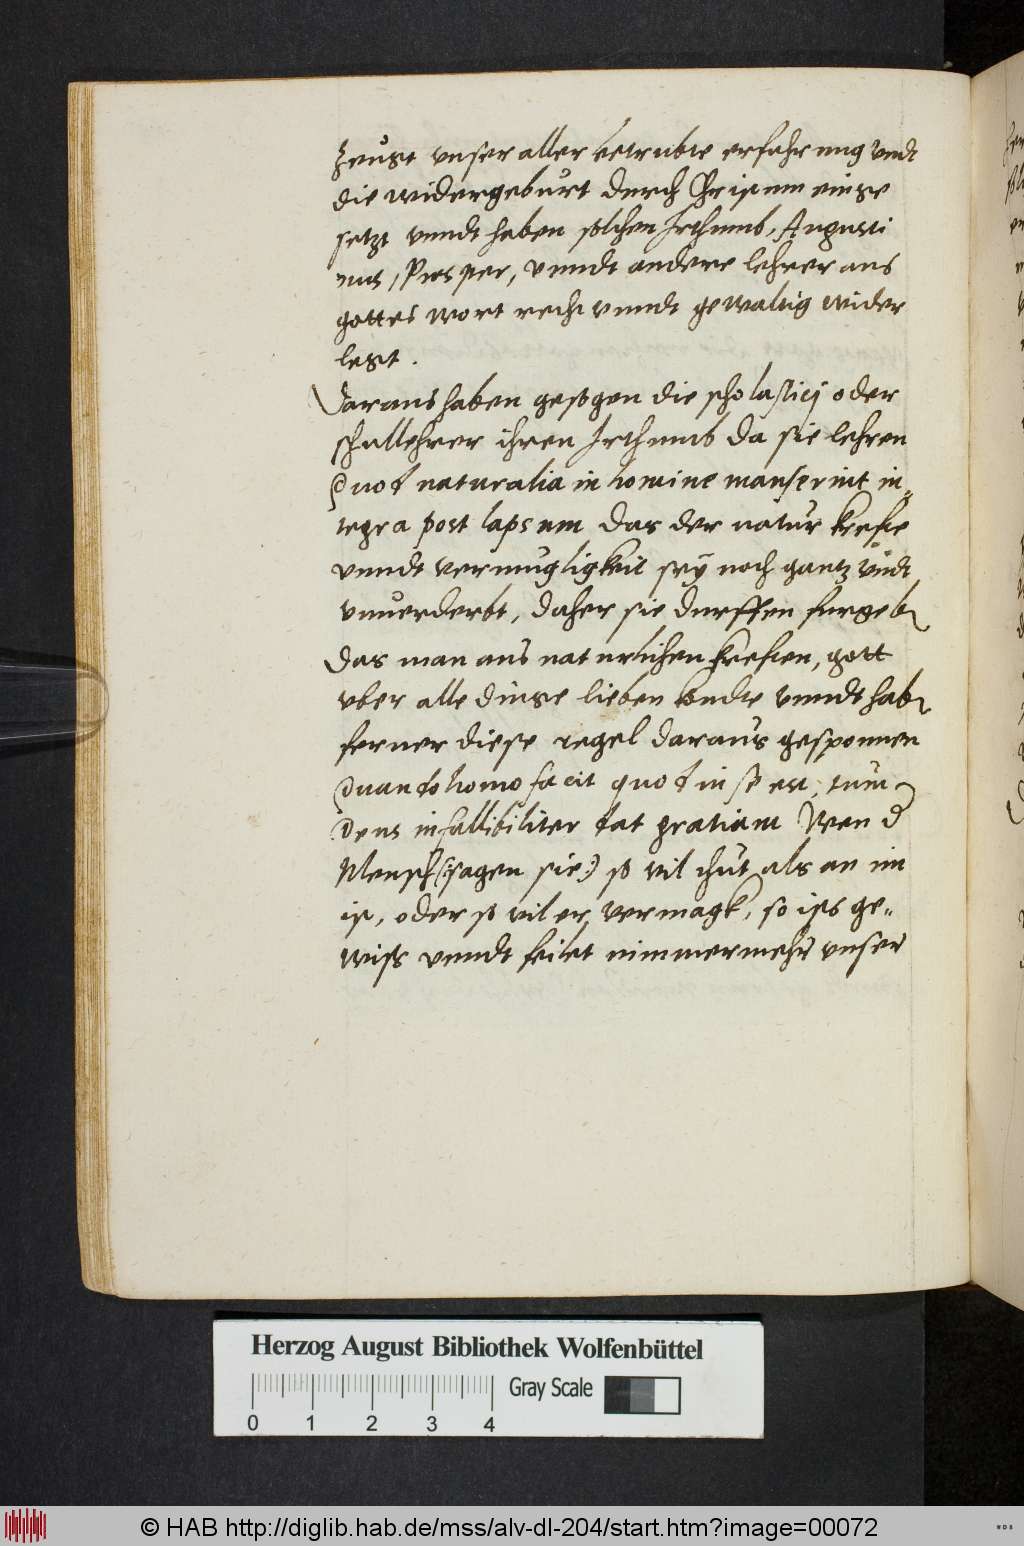 zeugt vnser aller betrubte erfahrung vndt
die widergeburt durch Christum einge
setzt vnndt haben solchen Irthumb, Augusti
nus, Prosper, vnndt andere lehrer aus
gottes wort recht vnndt gewaltig wider
legt.
Daraus haben gesogen die scholasticj oder
schullehrer ihren Irthumb da sie lehren
Quod naturalia in homine manserint in„
tegra post lapsum das der natur krefte
vnndt vermugligkeit sey noch gantz vndt
vnuerderbt, daher sie durffen furgeb
das man aus naturlichen krefften, gott
vber alle dinge lieben kondte vnndt hab
ferner diese regel daraus gesponnen
Quando homo facit quod in se est, tum
Deus infallibiliter dat gratiam Wen d
Mensch (:sagen sie:) so vil thut als an im
ist, oder so vil er vermagk, so ists ge„
wiss vnndt feilet nimmermehr vnser
Herzog August Bibliothek Wolfenbüttel
Gray Scale
0 1 2 3 4
© HAB http://diglib.hab.de/mss/alv-dl-204/start.htm?image=00072